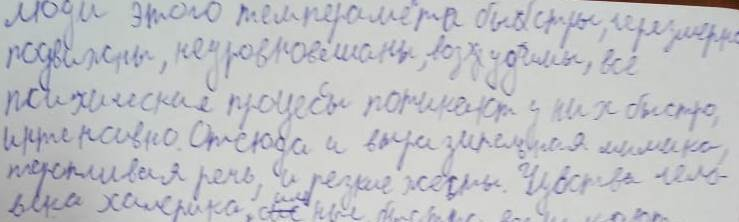 люди этого темперамета быбстры, черезмерно
подвижны, неуровновешаны, возбудимы, все
психические процесы потикают у них быстро,
интенсивно. Отсюда и выразительная мимика,
торопливая речь, и резкие жесты. Чувства чело-
века холерика, сильные, быстро